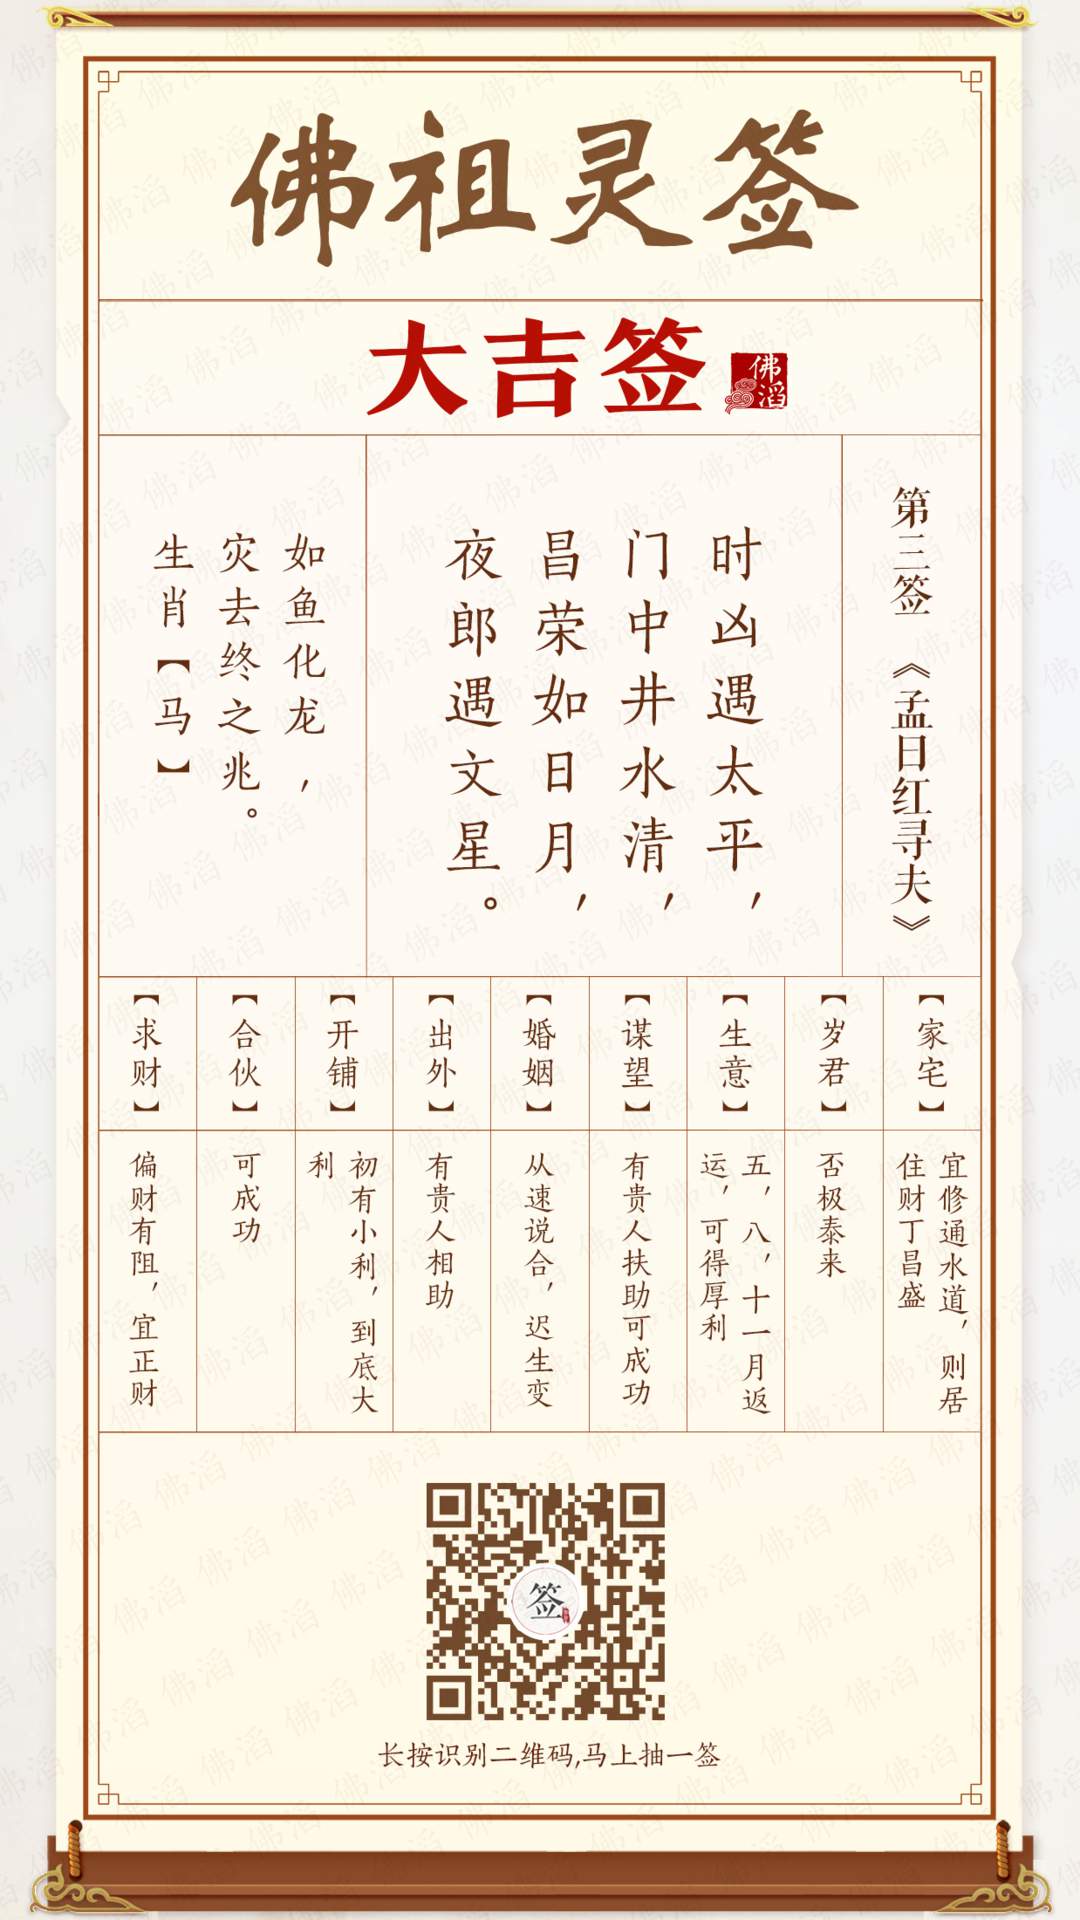 佛祖灵签
大吉签
佛滔
第三签 《孟日红寻夫》
时凶遇太平，
门中井水清，
昌荣如日月，
夜郎遇文星。
如鱼化龙，
灾去终之兆。
生肖【马】
【家宅】
宜修通水道，则居
住财丁昌盛
【岁君】
否极泰来
【生意】
五，八，十一月返
运，可得厚利
【谋望】
有贵人扶助可成功
【婚姻】
从速说合，迟生变
【出外】
有贵人相助
【开铺】
初有小利，到底大
利
【合伙】
可成功
【求财】
偏财有阻，宜正财
签
长按识别二维码,马上抽一签